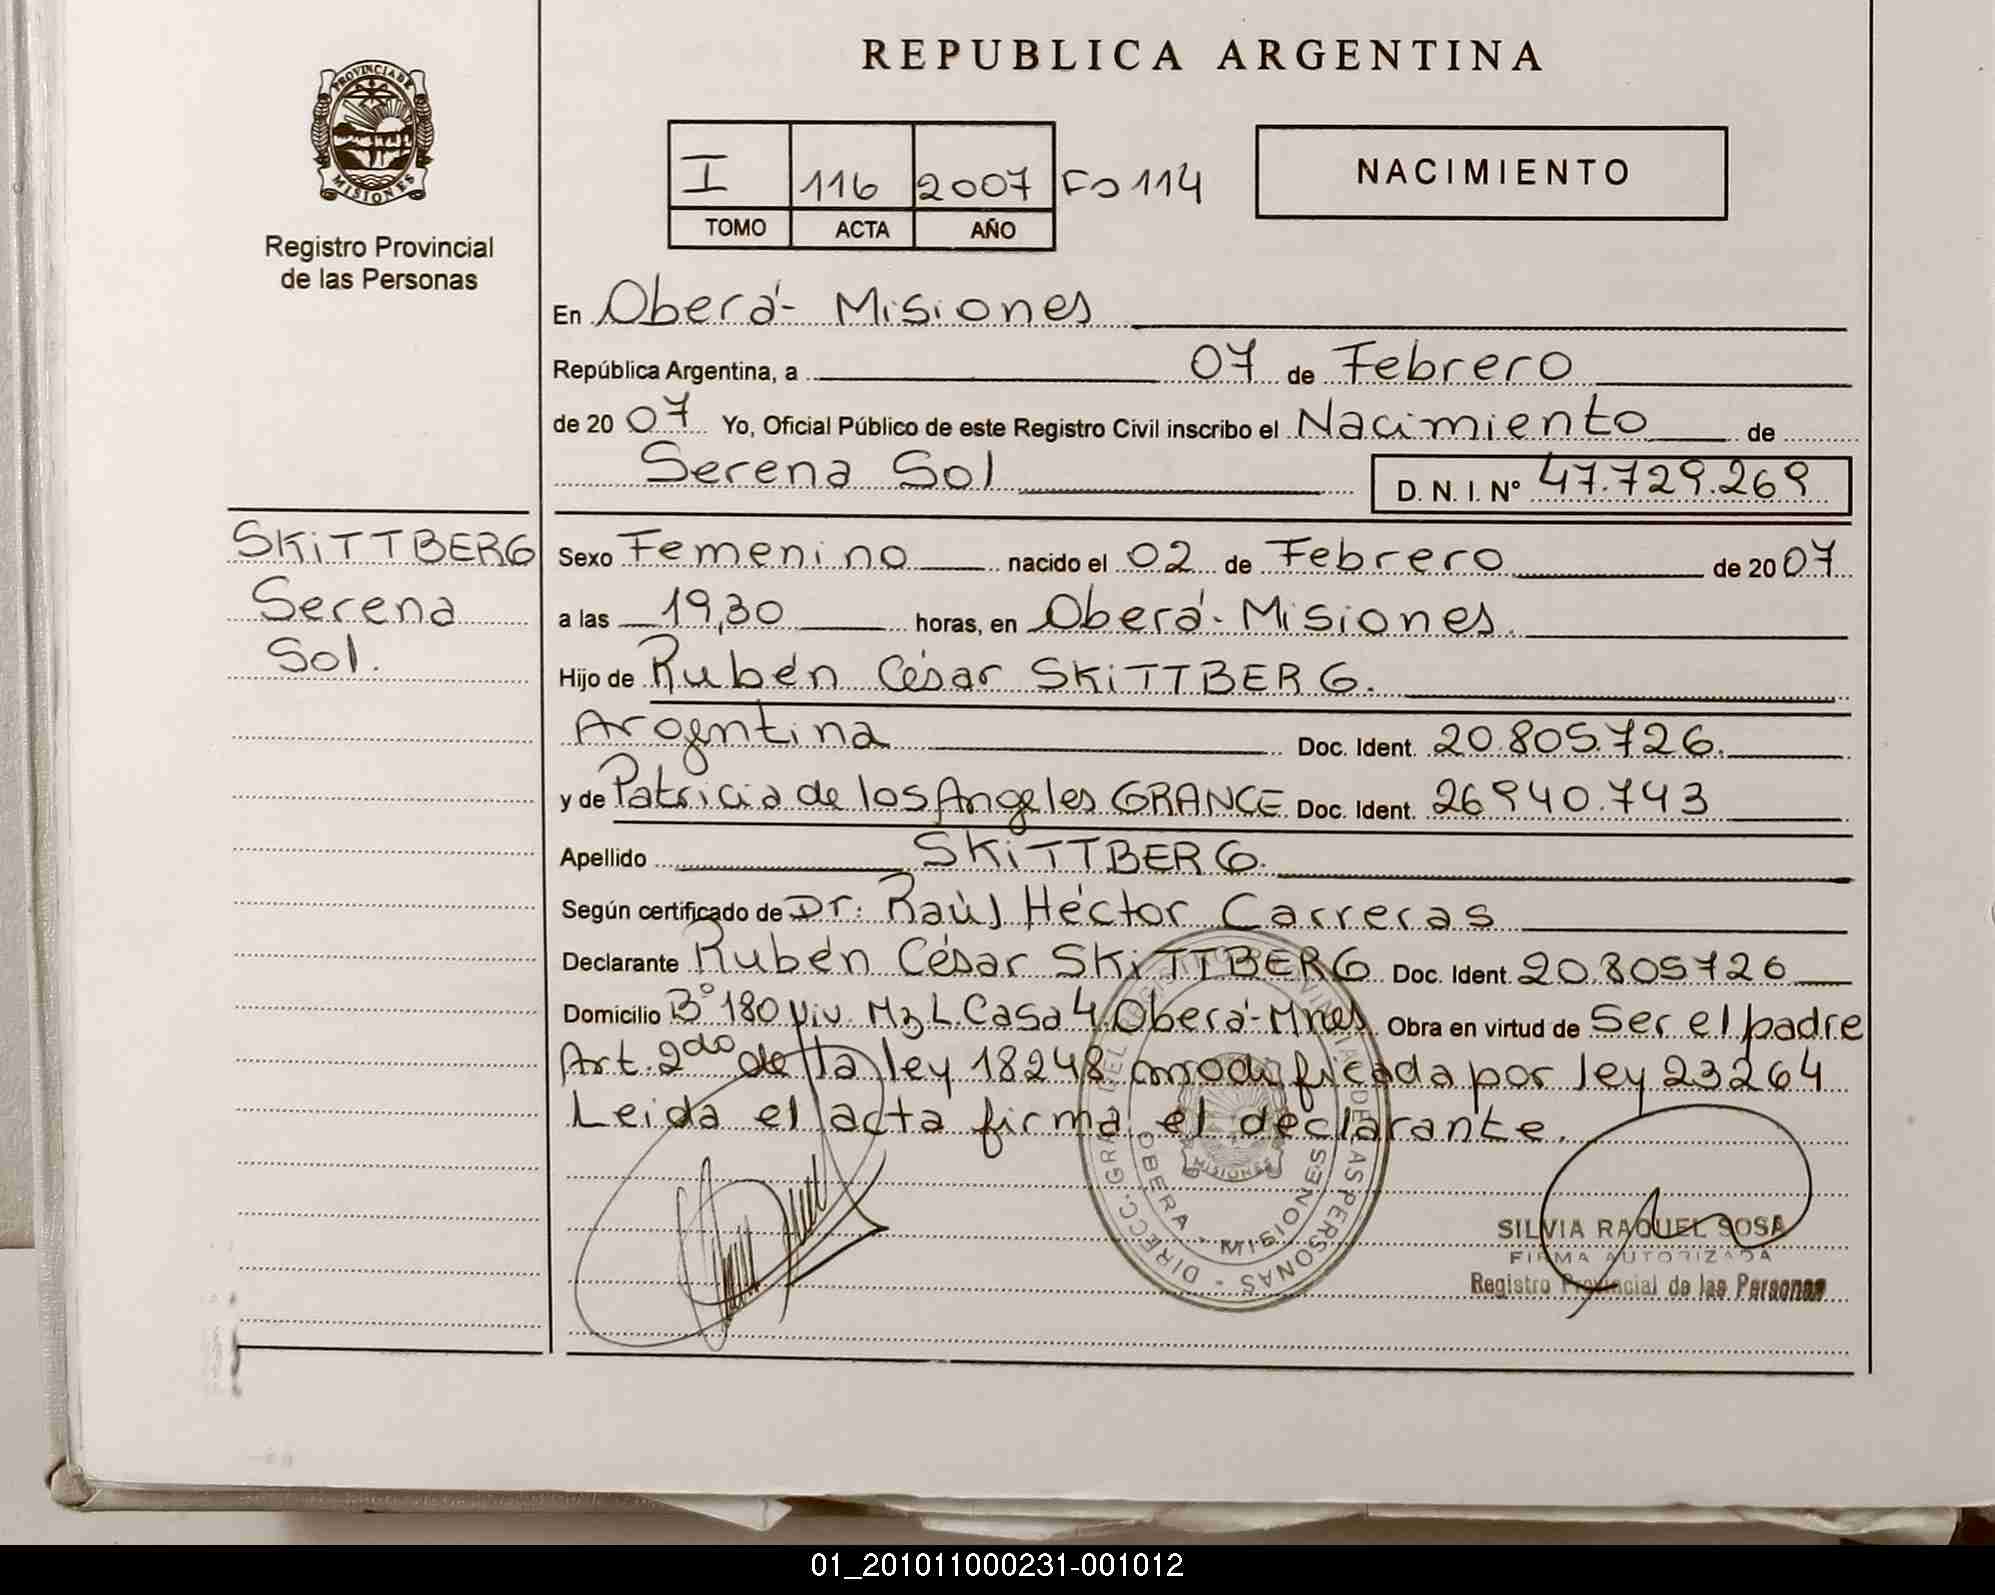 REPUBLICA ARGENTINA
PROVINCIA DE MISIONES
Registro Provincial
de las Personas
I 116 2007 Fo 114
TOMO ACTA AÑO
NACIMIENTO
En Oberá- Misiones
República Argentina, a 07 de Febrero
de 2007 Yo, Oficial Público de este Registro Civil inscribo el Nacimiento de
Serena Sol D. N. I. Nº 47.729.269
SKiTTBERG
Serena
Sol.
Sexo Femenino nacido el 02 de Febrero de 2007
a las 19,30 horas, en Oberá- Misiones.
Hijo de Rubén César SKiTTBERG.
Argentina Doc. Ident. 20.805.726.
y de Patricia de los Angeles GRANCE Doc. Ident. 26940.743
Apellido SKiTTBERG.
Según certificado de Dr. Raúl Héctor Carreras
Declarante Rubén César SKiTTBERG Doc. Ident. 20.805726
Domicilio Bº 180 viv. Mz L. Casa 4. Oberá- Mnes Obra en virtud de Ser el padre
Art. 2do de la ley 18248 modificada por ley 23264
Leida el acta firma el declarante.
DIRECC. GRAL DEL REGISTRO PROVINCIAL DE LAS PERSONAS
OBERA - MISIONES
MISIONES
SILVIA RAQUEL SOSA
FIRMA AUTORIZADA
Registro Provincial de las Personas
01_201011000231-001012